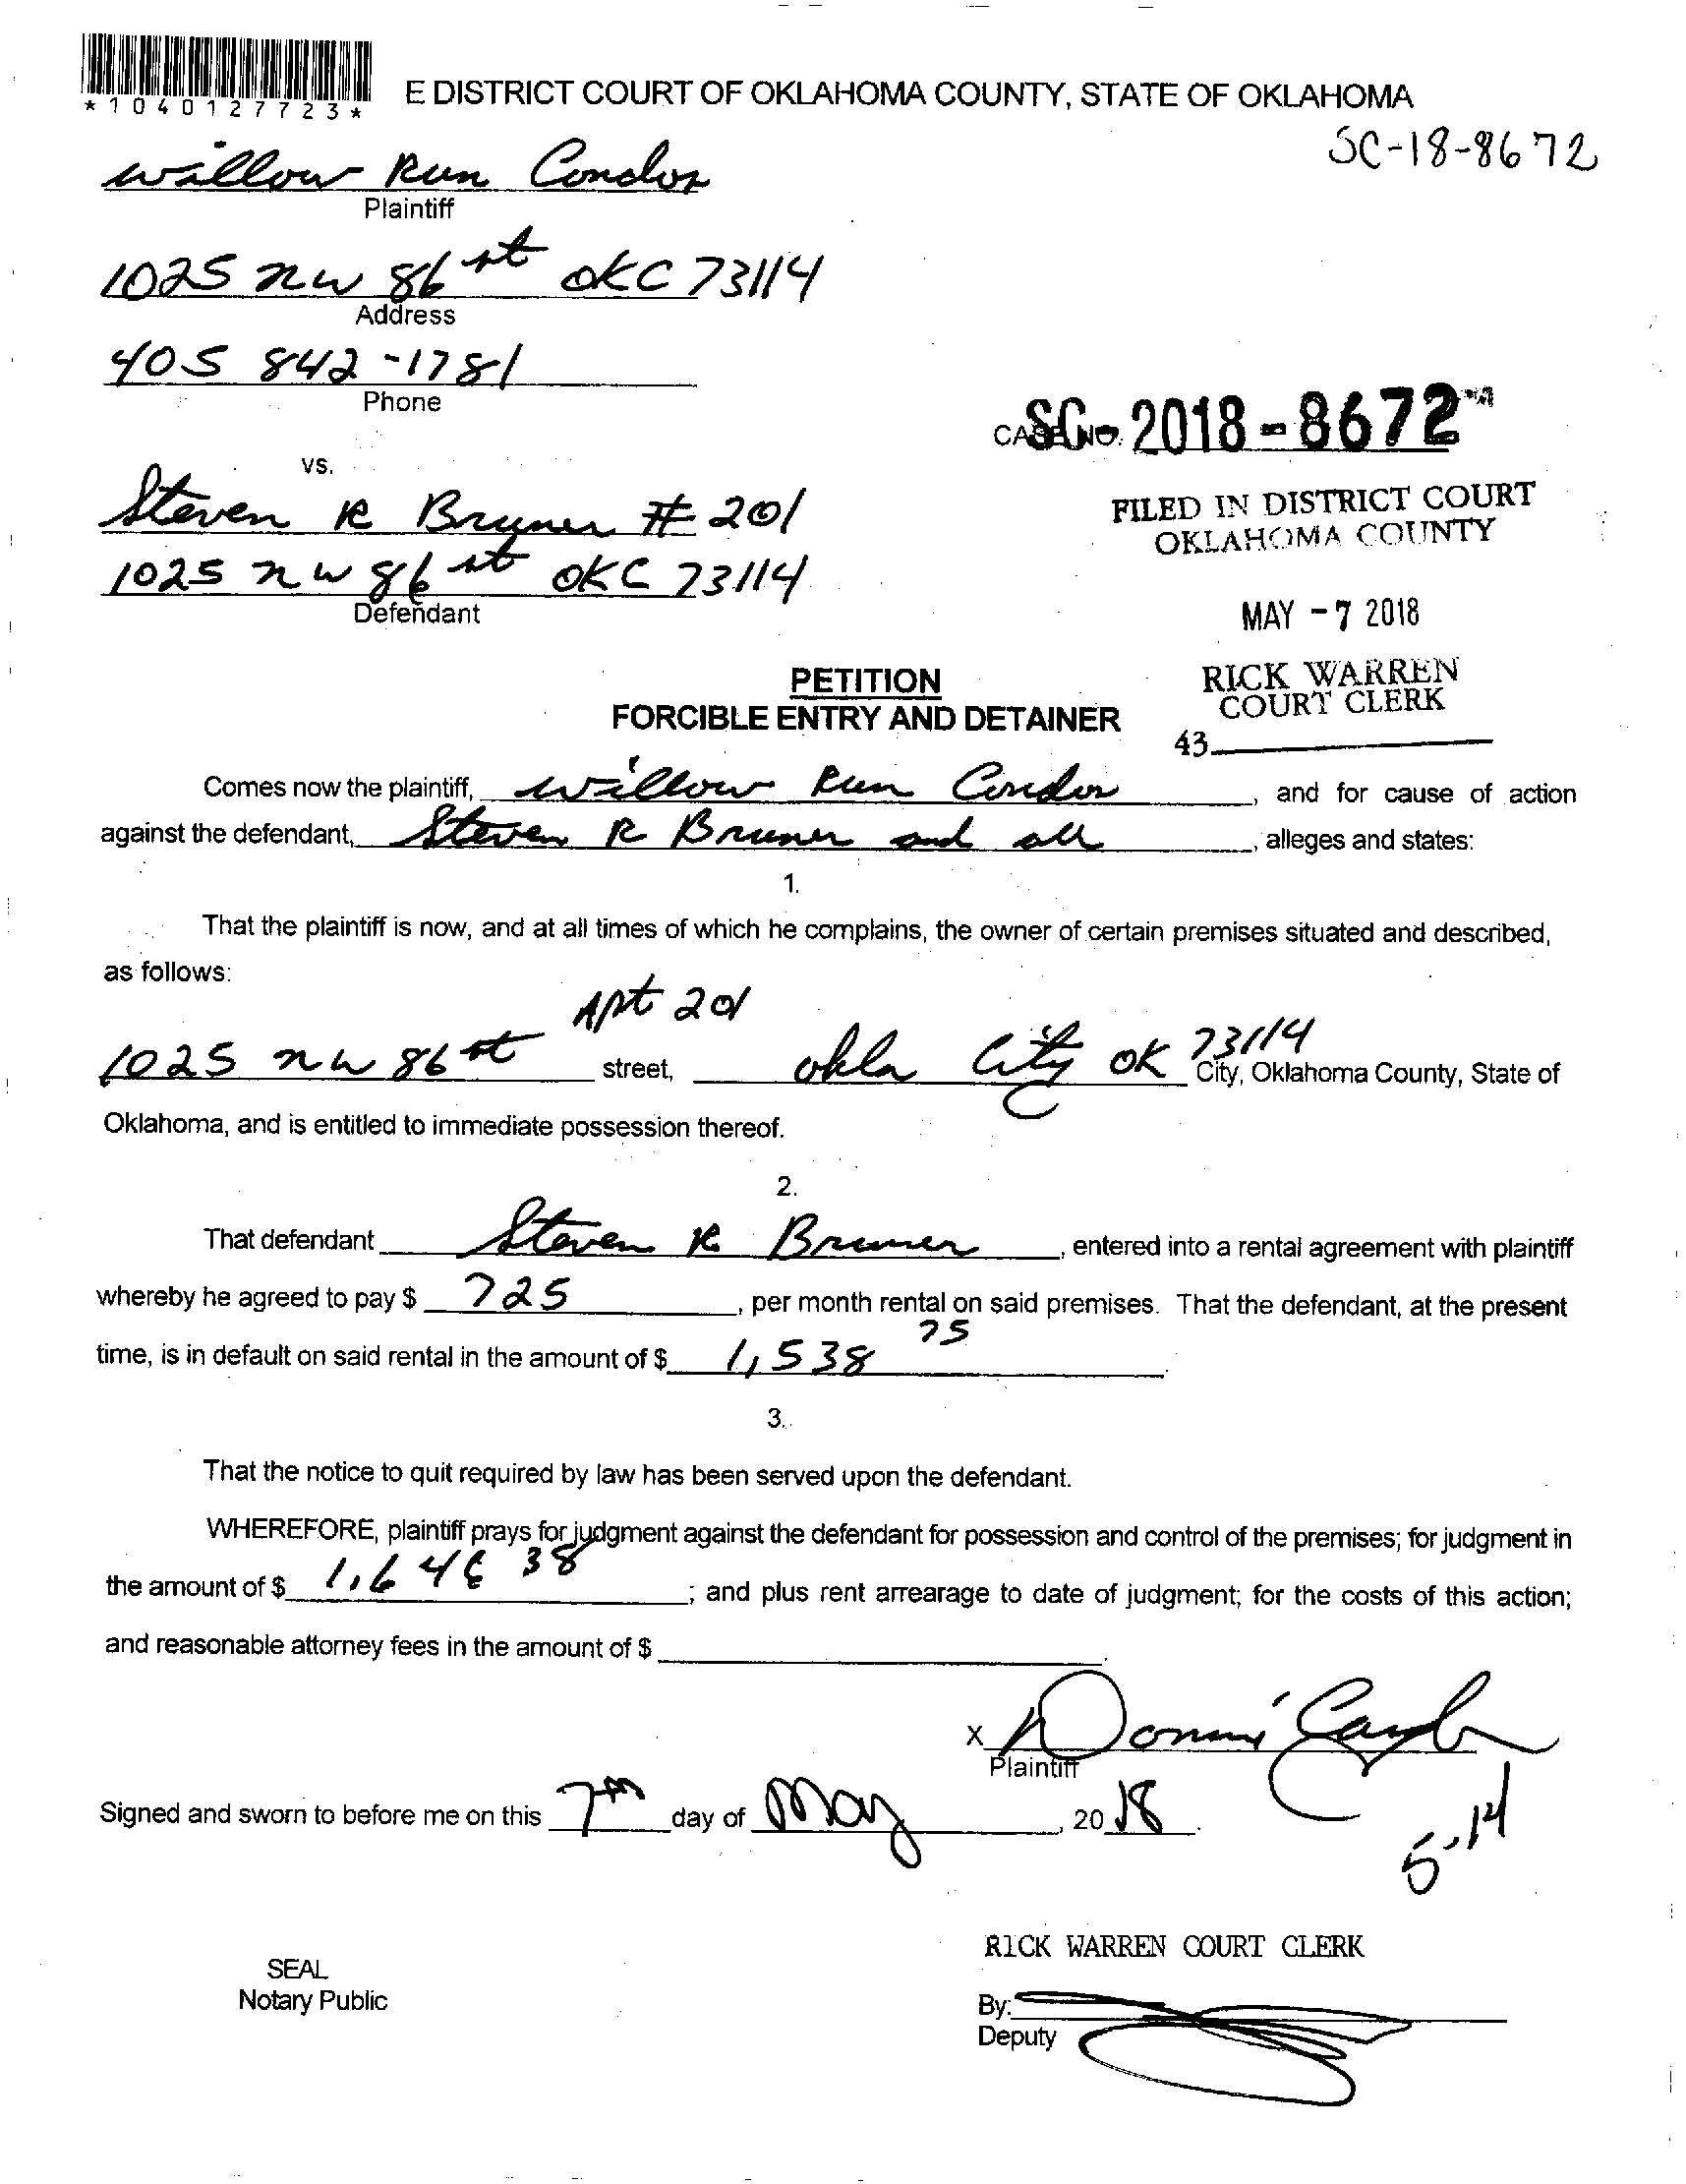 *1040127723*
E DISTRICT COURT OF OKLAHOMA COUNTY, STATE OF OKLAHOMA
SC-18-8672
Willow Run Condos
Plaintiff
1025 NW 86 st OKC 73114
Address
405 842-1781
Phone
CASE NO. SC-2018-8672
vs.
Steven R Bruner # 201
FILED IN DISTRICT COURT
OKLAHOMA COUNTY
1025 NW 86 st OKC 73114
Defendant
MAY -7 2018
PETITION
RICK WARREN
COURT CLERK
FORCIBLE ENTRY AND DETAINER
43
Comes now the plaintiff, Willow Run Condos, and for cause of action
against the defendant, Steven R Bruner and all, alleges and states:
1.
That the plaintiff is now, and at all times of which he complains, the owner of certain premises situated and described,
as follows:
Apt 201
1025 NW 86 st street, Okla City OK 73114 City, Oklahoma County, State of
Oklahoma, and is entitled to immediate possession thereof.
2.
That defendant Steven R Bruner, entered into a rental agreement with plaintiff
whereby he agreed to pay $ 725, per month rental on said premises. That the defendant, at the present
time, is in default on said rental in the amount of $ 1,538 75.
3.
That the notice to quit required by law has been served upon the defendant.
WHEREFORE, plaintiff prays for judgment against the defendant for possession and control of the premises; for judgment in
the amount of $ 38; and plus rent arrearage to date of judgment; for the costs of this action;
and reasonable attorney fees in the amount of $
X
Plaintiff
Signed and sworn to before me on this 7th day of May, 2018.
5-14
RICK WARREN COURT CLERK
SEAL
Notary Public
By:
Deputy